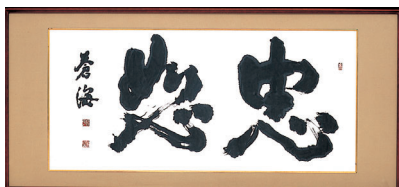 忠恕
蒼海